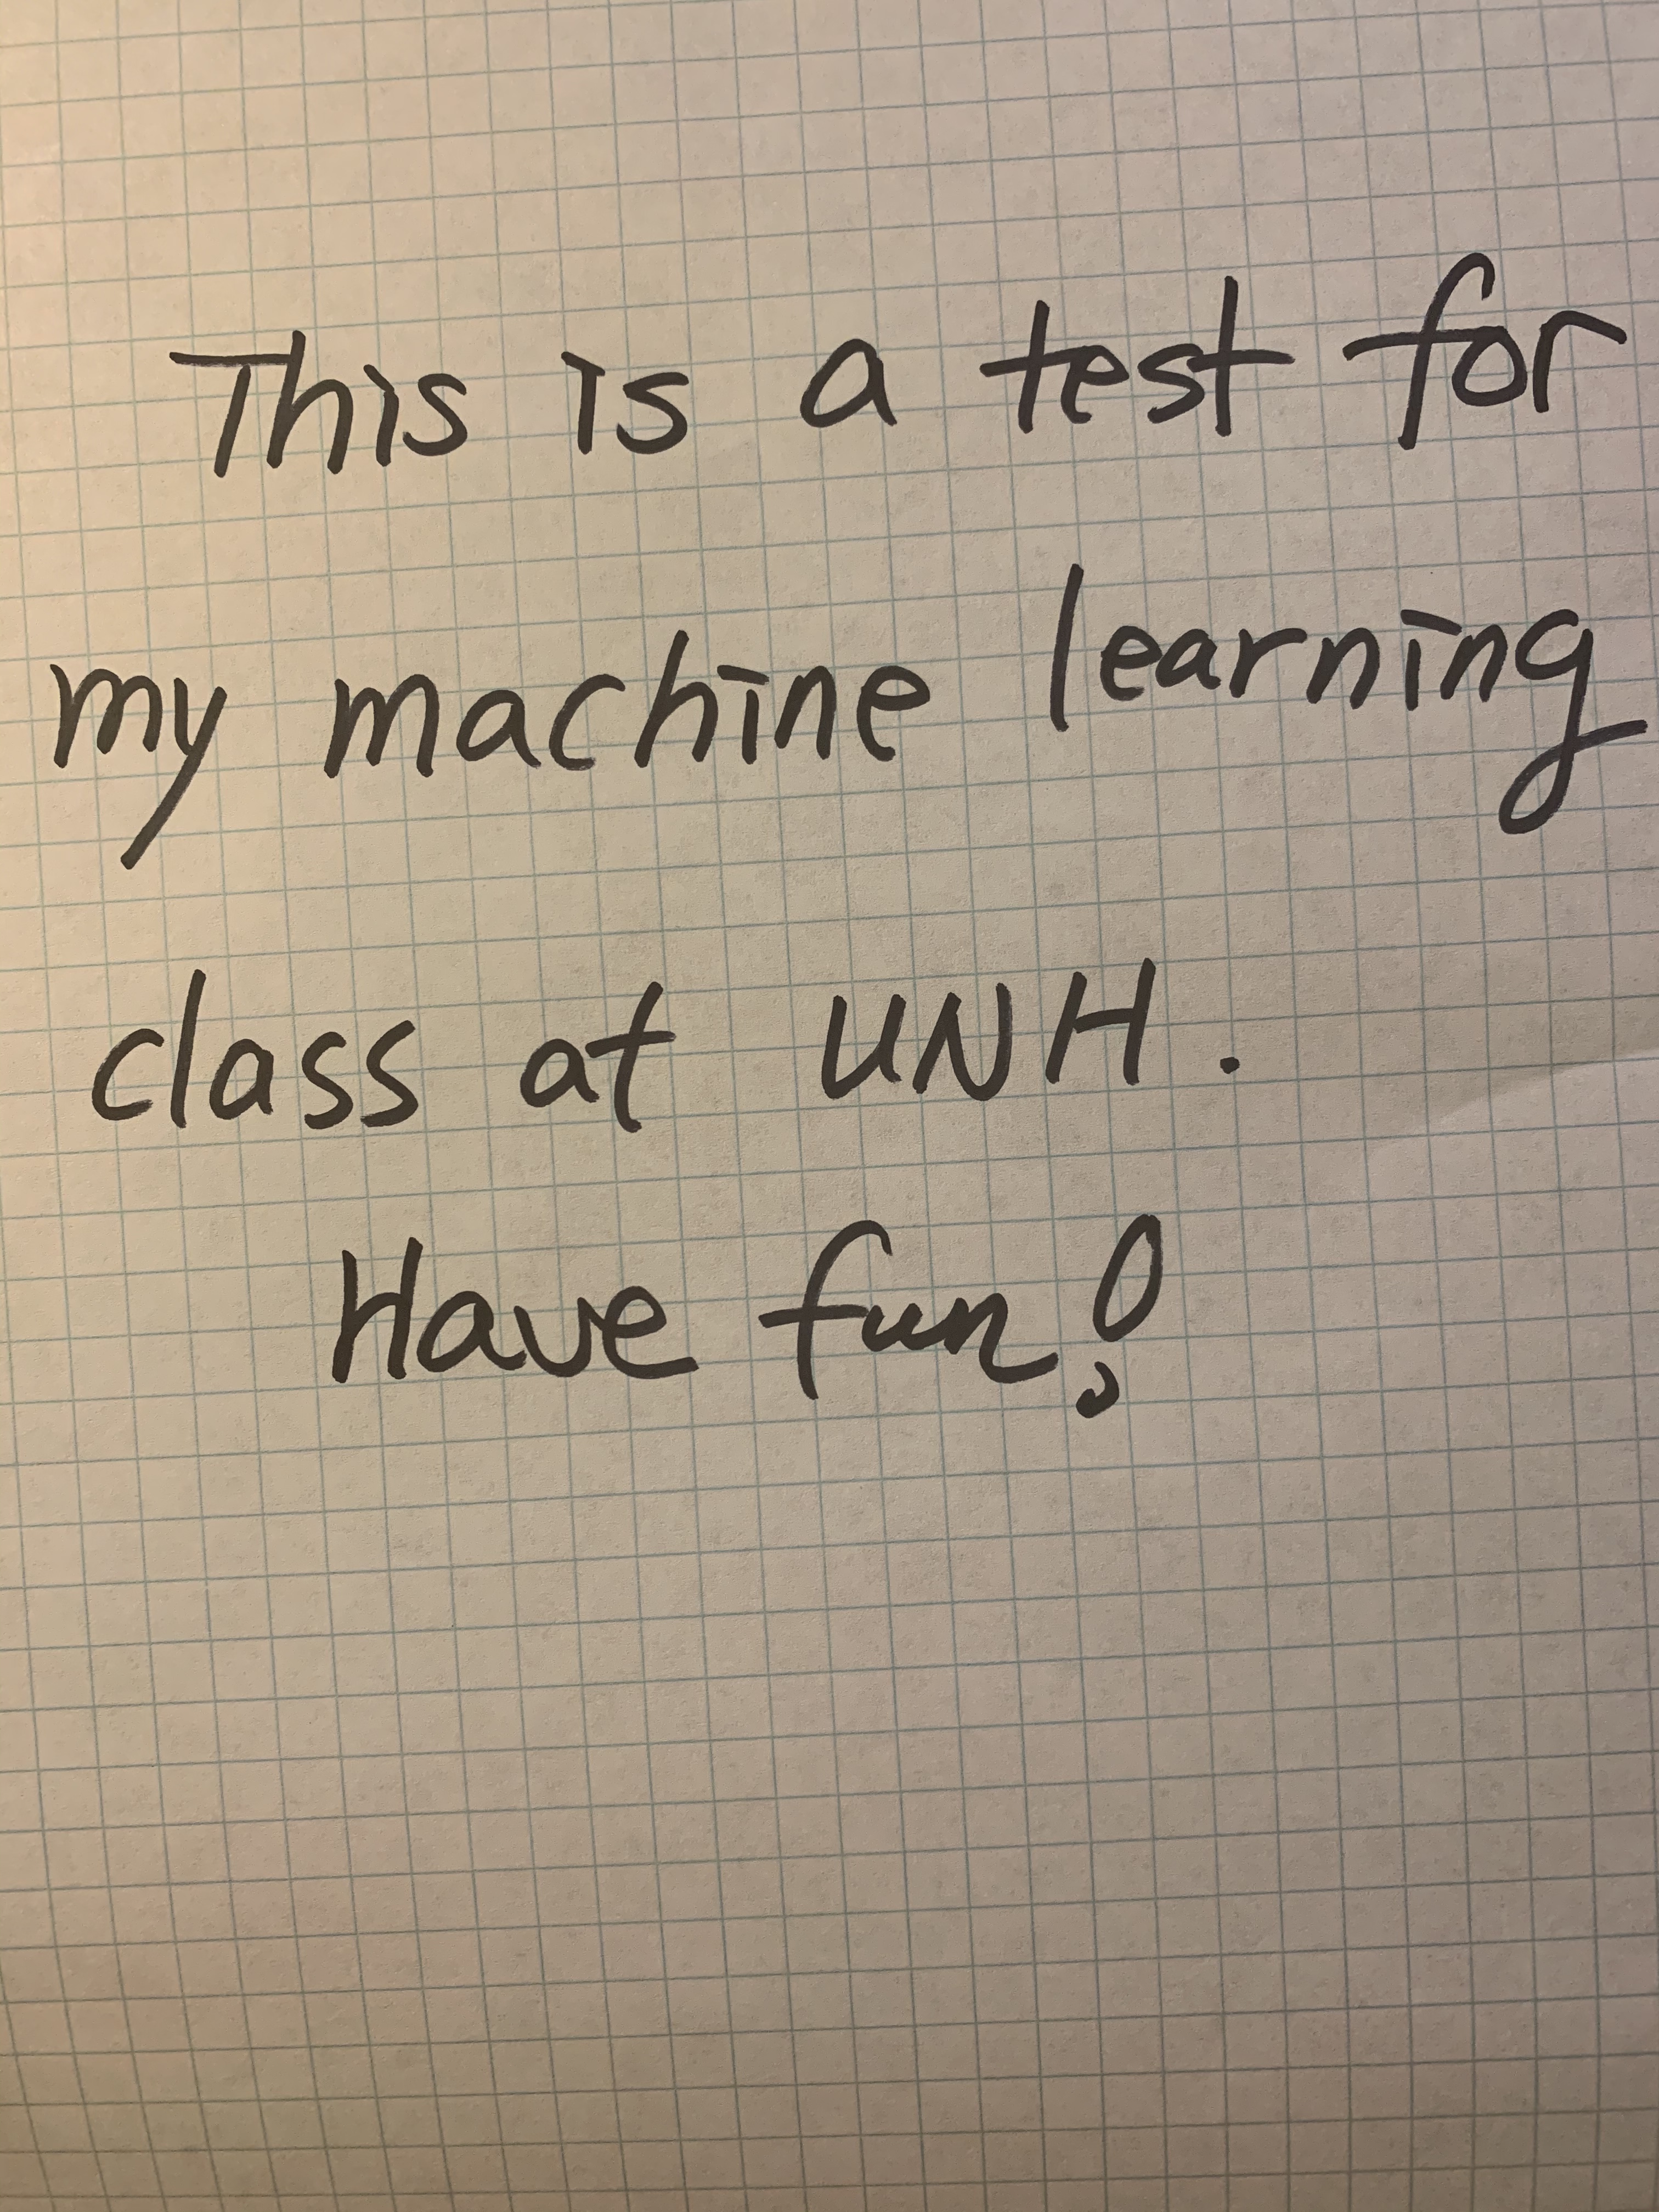 This is a test for
my machine learning
class at UNH.
Have fun!